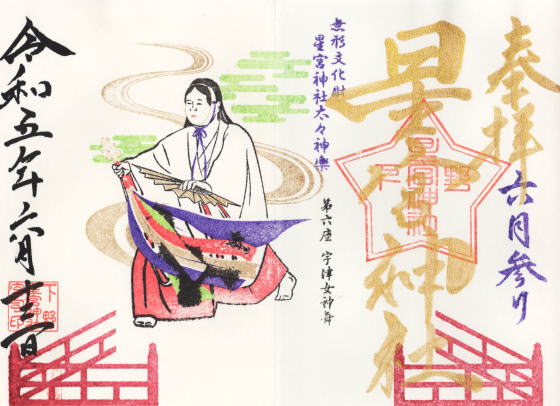 奉拝
六月参り
星宮神社
下野
星宮神社
無形文化財
星宮神社太々神楽
第六座 宇津女神舞
令和五年六月十三日
下野
星宮神社
宮司之印